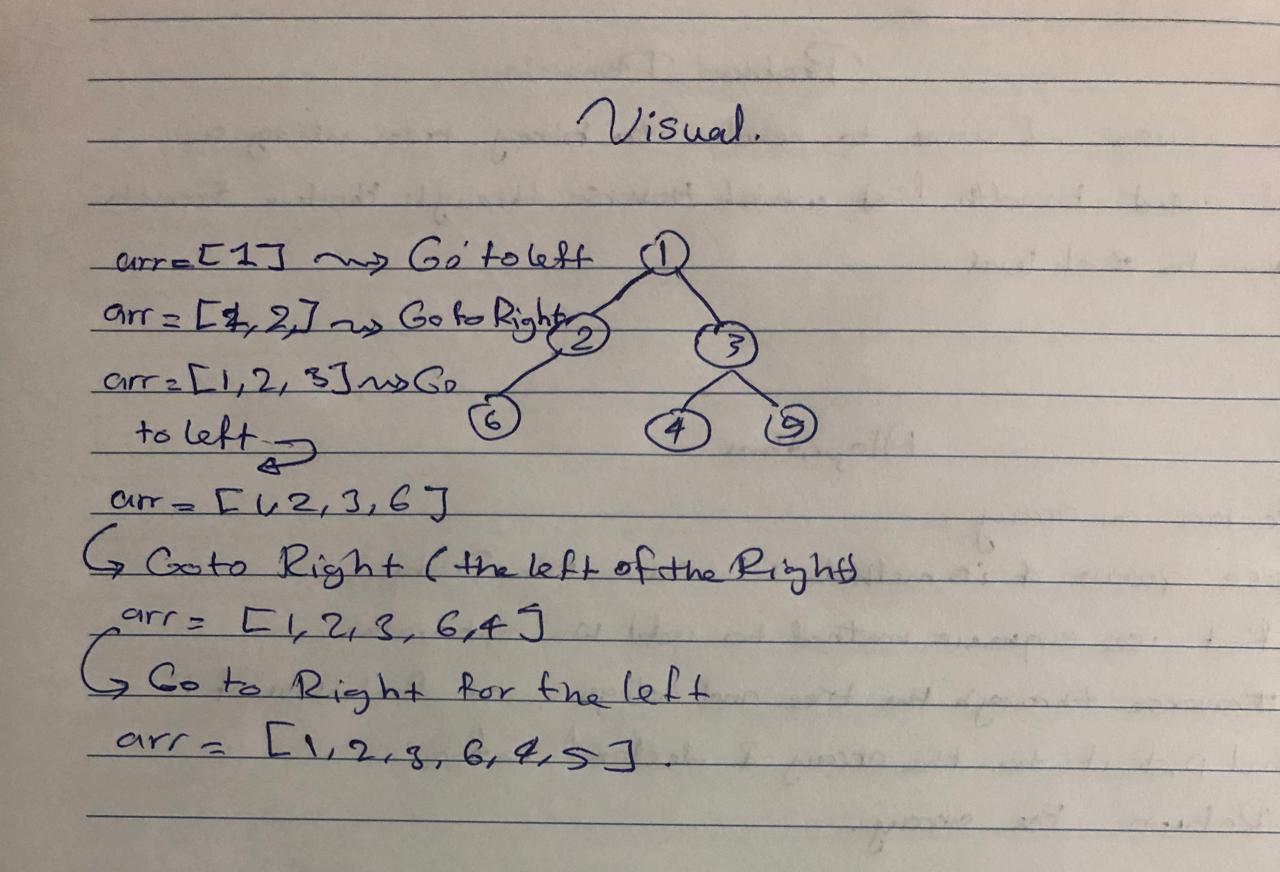 Visual.
arr=[1] Go to left
arr=[1,2,] Go to Right
arr=[1,2,3] Go
to left
arr=[1,2,3,6]
Goto Right (the left of the Right)
arr=[1,2,3,6,4]
Go to Right for the left
arr=[1,2,3,6,4,5].
1
2 3
6 4 5